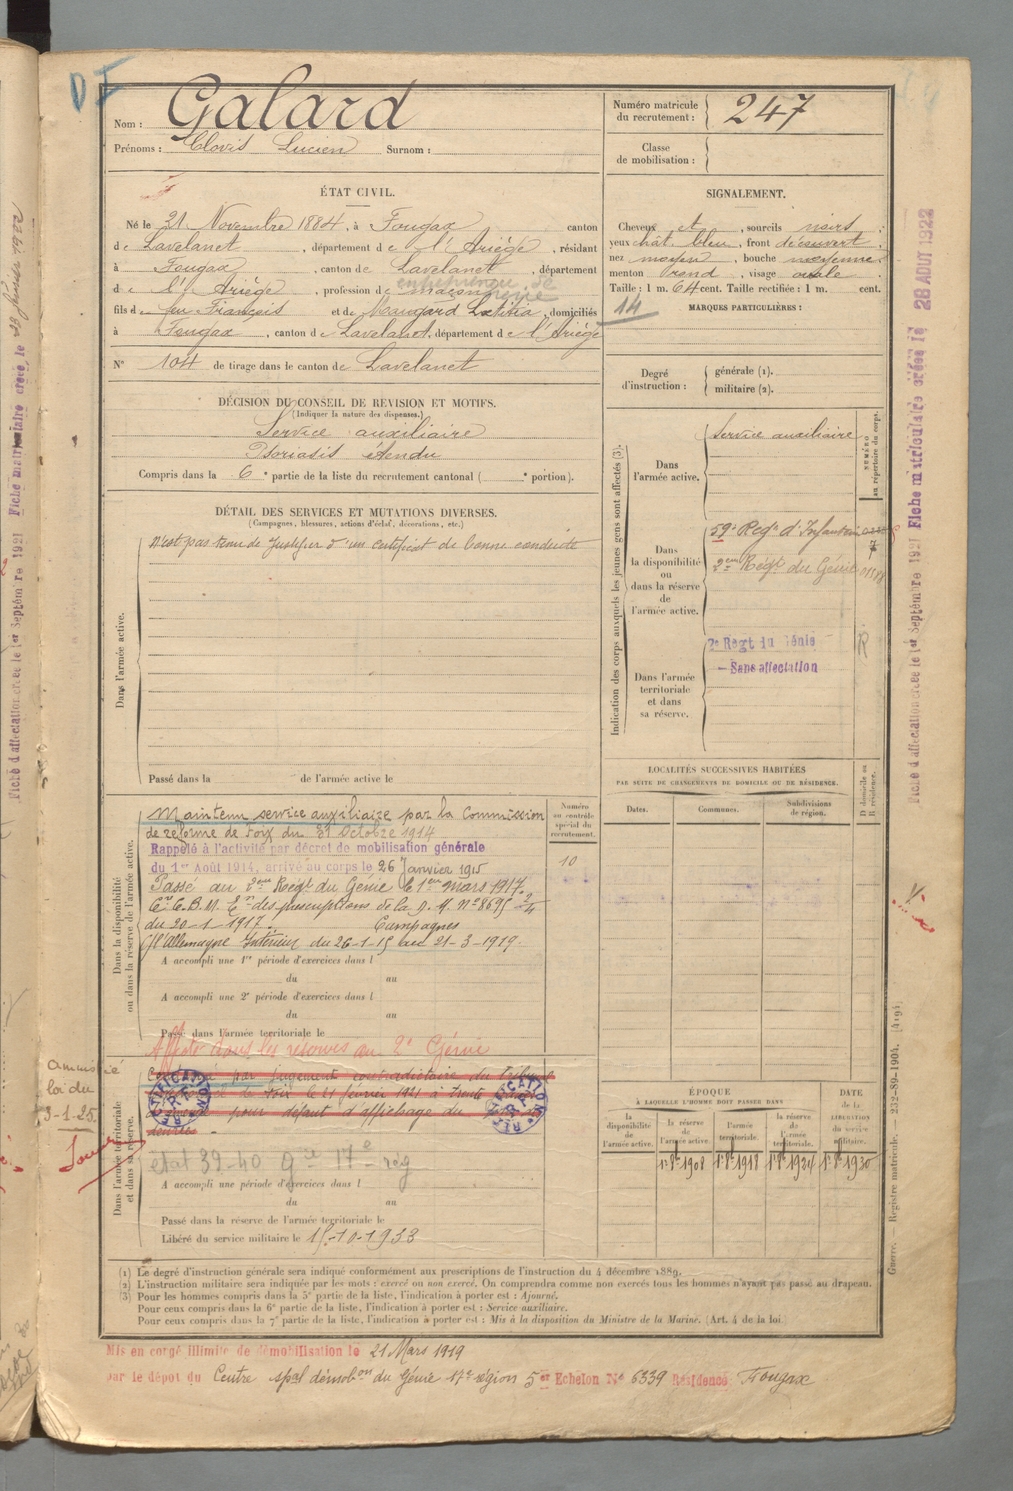 D
Nom : Galard
Prénoms : Clovis Lucien Surnom :
Numéro matricule du recrutement : 247
Classe de mobilisation :
ÉTAT CIVIL.
Né le 21 Novembre 1884, à Fougax canton
de Lavelanet, département de l'Ariège, résidant
à Fougax, canton de Lavelanet, département
de l'Ariège, profession de maçon
fils de feu François et de Maugard Lætitia, domiciliés
à Fougax, canton de Lavelanet, département de l'Ariège
N° 104 de tirage dans le canton de Lavelanet
SIGNALEMENT.
Cheveux et, sourcils noirs
yeux chât. bleu, front découvert
nez moyen, bouche moyenne
menton rond, visage ovale
Taille : 1 m. 64 cent. Taille rectifiée : 1 m. cent.
14
MARQUES PARTICULIÈRES :
Degré d'instruction : générale (1).
militaire (2).
DÉCISION DU CONSEIL DE REVISION ET MOTIFS.
(Indiquer la nature des dispenses.)
Service auxiliaire
Psoriasis étendu
Compris dans la 6e partie de la liste du recrutement cantonal ( e portion).
DÉTAIL DES SERVICES ET MUTATIONS DIVERSES.
(Campagnes, blessures, actions d'éclat, décorations, etc.)
Dans l'armée active.
N'est pas tenu de justifier d'un certificat de bonne conduite
Passé dans la de l'armée active le
Indication des corps auxquels les jeunes gens sont affectés (3).
NUMÉRO au répertoire du corps.
Dans l'armée active.
Service auxiliaire
Dans la disponibilité ou dans la réserve de l'armée active.
59e Regt d'Infanterie
2eme Régt du Génie
Dans l'armée territoriale et dans sa réserve.
2e Regt du Génie
- Sans affectation
R
LOCALITÉS SUCCESSIVES HABITÉES
PAR SUITE DE CHANGEMENTS DE DOMICILE OU DE RÉSIDENCE.
Dates. Communes. Subdivisions de région.
D domicile ou R résidence.
Dans la disponibilité ou dans la réserve de l'armée active.
Numéro au contrôle spécial du recrutement.
10
Maintenu service auxiliaire par la Commission
de réforme de Foix du 31 Octobre 1914
Rappelé à l'activité par décret de mobilisation générale
du 1er Août 1914, arrivé au corps le 26 Janvier 1915
Passé au 2eme Régt du Génie le 1er mars 1917.
des prescriptions de la D. M. N° 8695 2/4
du 20-1-1917. Campagnes
c/ l'Allemagne Intérieur du 26-1-15 au 21-3-1919.
A accompli une 1re période d'exercices dans l
du au
A accompli une 2e période d'exercices dans l
du au
Passé dans l'armée territoriale le
Affecté dans les réserves au 2e Génie
Dans l'armée territoriale et dans sa réserve.
amnistié
loi du
3-1-25
par jugement contradictoire du tribunal
de Foix le 21 février 1921 à
pour défaut d'affichage du
denrées
RECTIFICATION
RECTIFICATION
état 39-40 17e reg
A accompli une période d'exercices dans l
du au
Passé dans la réserve de l'armée territoriale le
Libéré du service militaire le 15-10-1933
ÉPOQUE
À LAQUELLE L'HOMME DOIT PASSER DANS
la disponibilité de l'armée active.
la réserve de l'armée active. 1er 8bre 1908
l'armée territoriale. 1er 8bre 1918
la réserve de l'armée territoriale. 1er 8bre 1924
DATE de la LIBÉRATION du service militaire. 1er 8bre 1930
(1) Le degré d'instruction générale sera indiqué conformément aux prescriptions de l'instruction du 4 décembre 1889.
(2) L'instruction militaire sera indiquée par les mots : exercé ou non exercé. On comprendra comme non exercés tous les hommes n'ayant pas passé au drapeau.
(3) Pour les hommes compris dans la 5e partie de la liste, l'indication à porter est : Ajourné.
Pour ceux compris dans la 6e partie de la liste, l'indication à porter est : Service auxiliaire.
Pour ceux compris dans la 7e partie de la liste, l'indication à porter est : Mis à la disposition du Ministre de la Marine. (Art. 4 de la loi
Mis en congé illimité de démobilisation le 21 Mars 1919
par le dépôt du Centre spal démobon du Génie 17e région 5er Echelon N° 6339 Résidence Fougax
Fiche d'affectation créée le 1er Septembre 1921 Fiche matriculaire créée le 28 AOUT 1922
Guerre. — Registre matricule. — 232-89-1904. [419]
Fiche d'affectation créée le 1er Septembre 1921 Fiche matriculaire créée le 28 février 1922